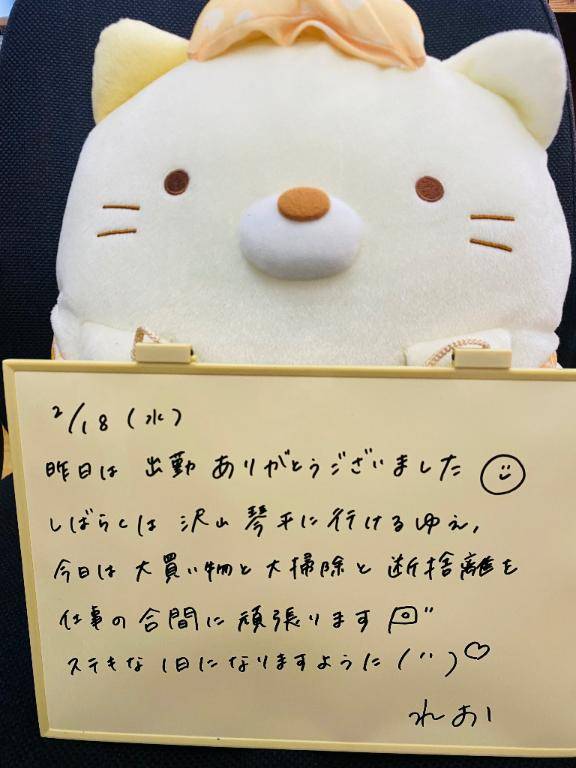 2/18(水)
昨日は 出勤 ありがとうございました
しばらくは 沢山 琴平に行けるゆえ,
今日は 大買い物と 大掃除と 断捨離を
仕事の合間に 頑張ります
ステキな 1日になりますように